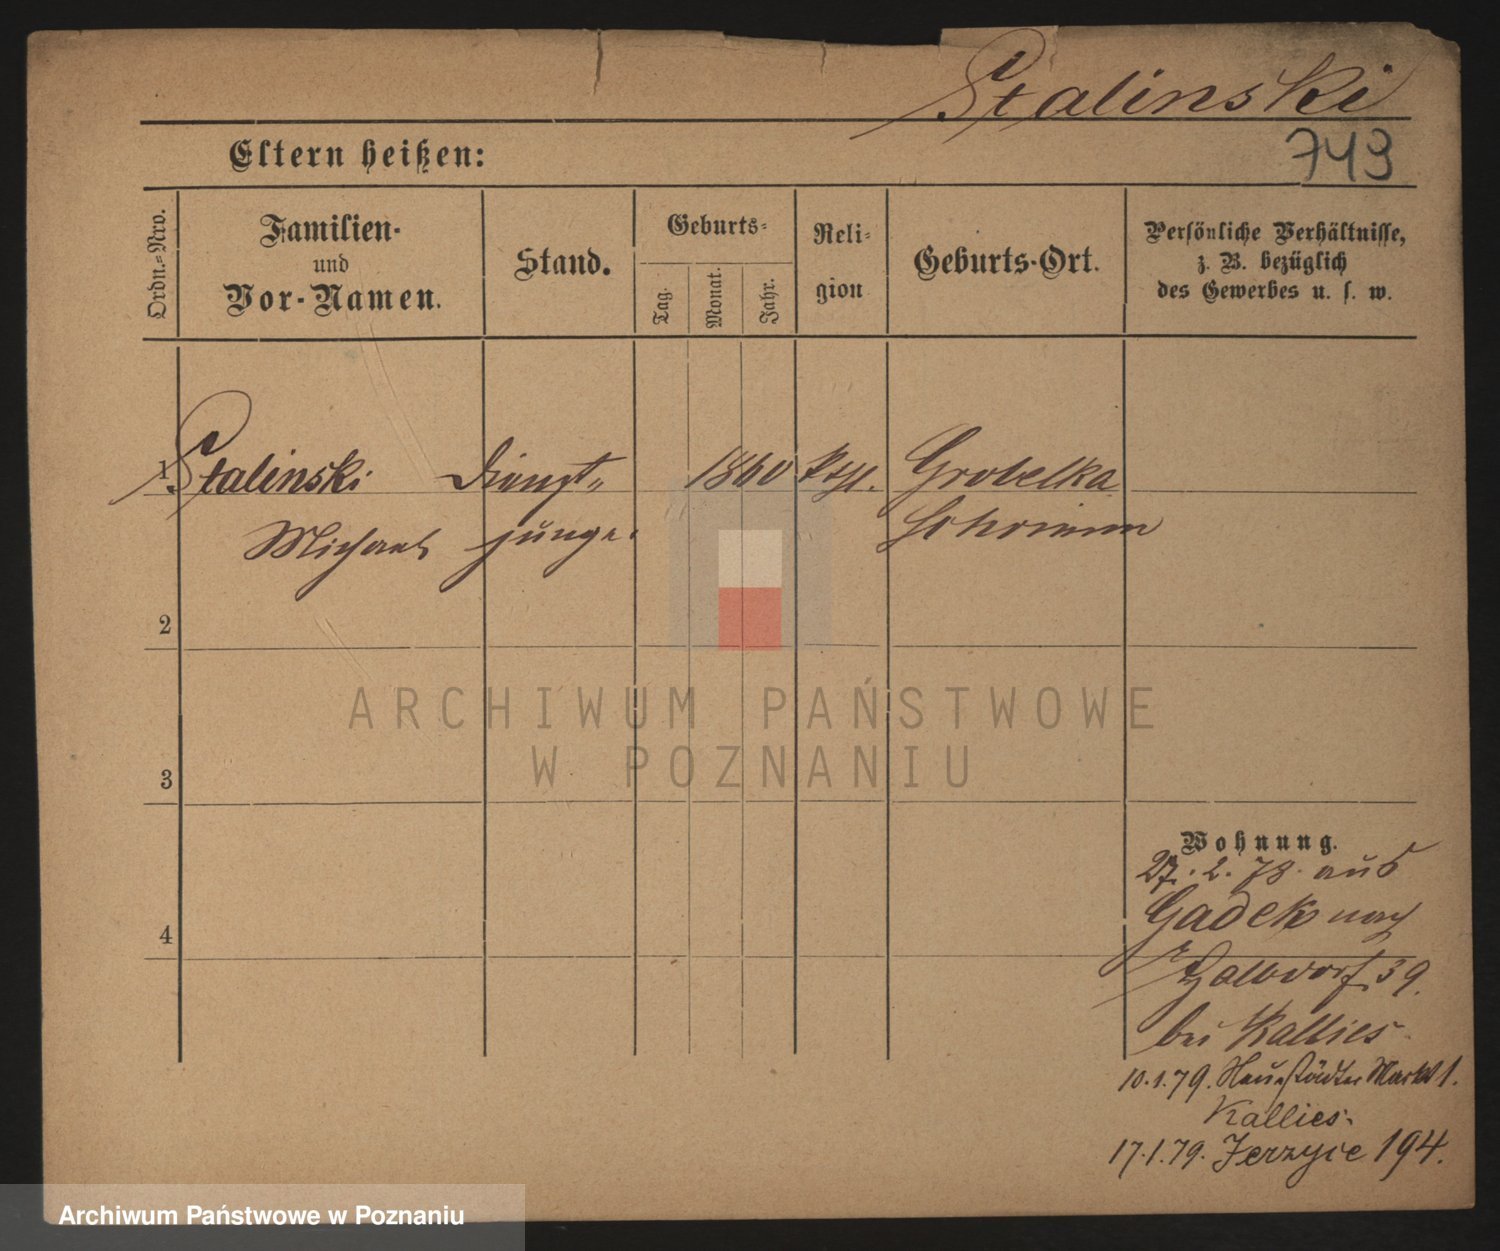 Stalinski
743
Eltern heißen:
Ordn.-Nro.
Familien-
und
Vor-Namen.
Stand.
Geburts-
Tag.
Monat.
Jahr.
Reli-
gion
Geburts-Ort.
Persönliche Verhältnisse,
z. B. bezüglich
des Gewerbes u. s. w.
1 Stalinski Dienst- 1860 kath. Grobelka
Michael junge. Schrimm
2
3
4
Wohnung.
27. 2. 78. aus
Gadek nach
39.
bei Kallies
10.1.79. Neustädter Markt 1.
Kallies.
17.1.79. Jerzyce 194.
ARCHIWUM PAŃSTWOWE
W POZNANIU
Archiwum Państwowe w Poznaniu